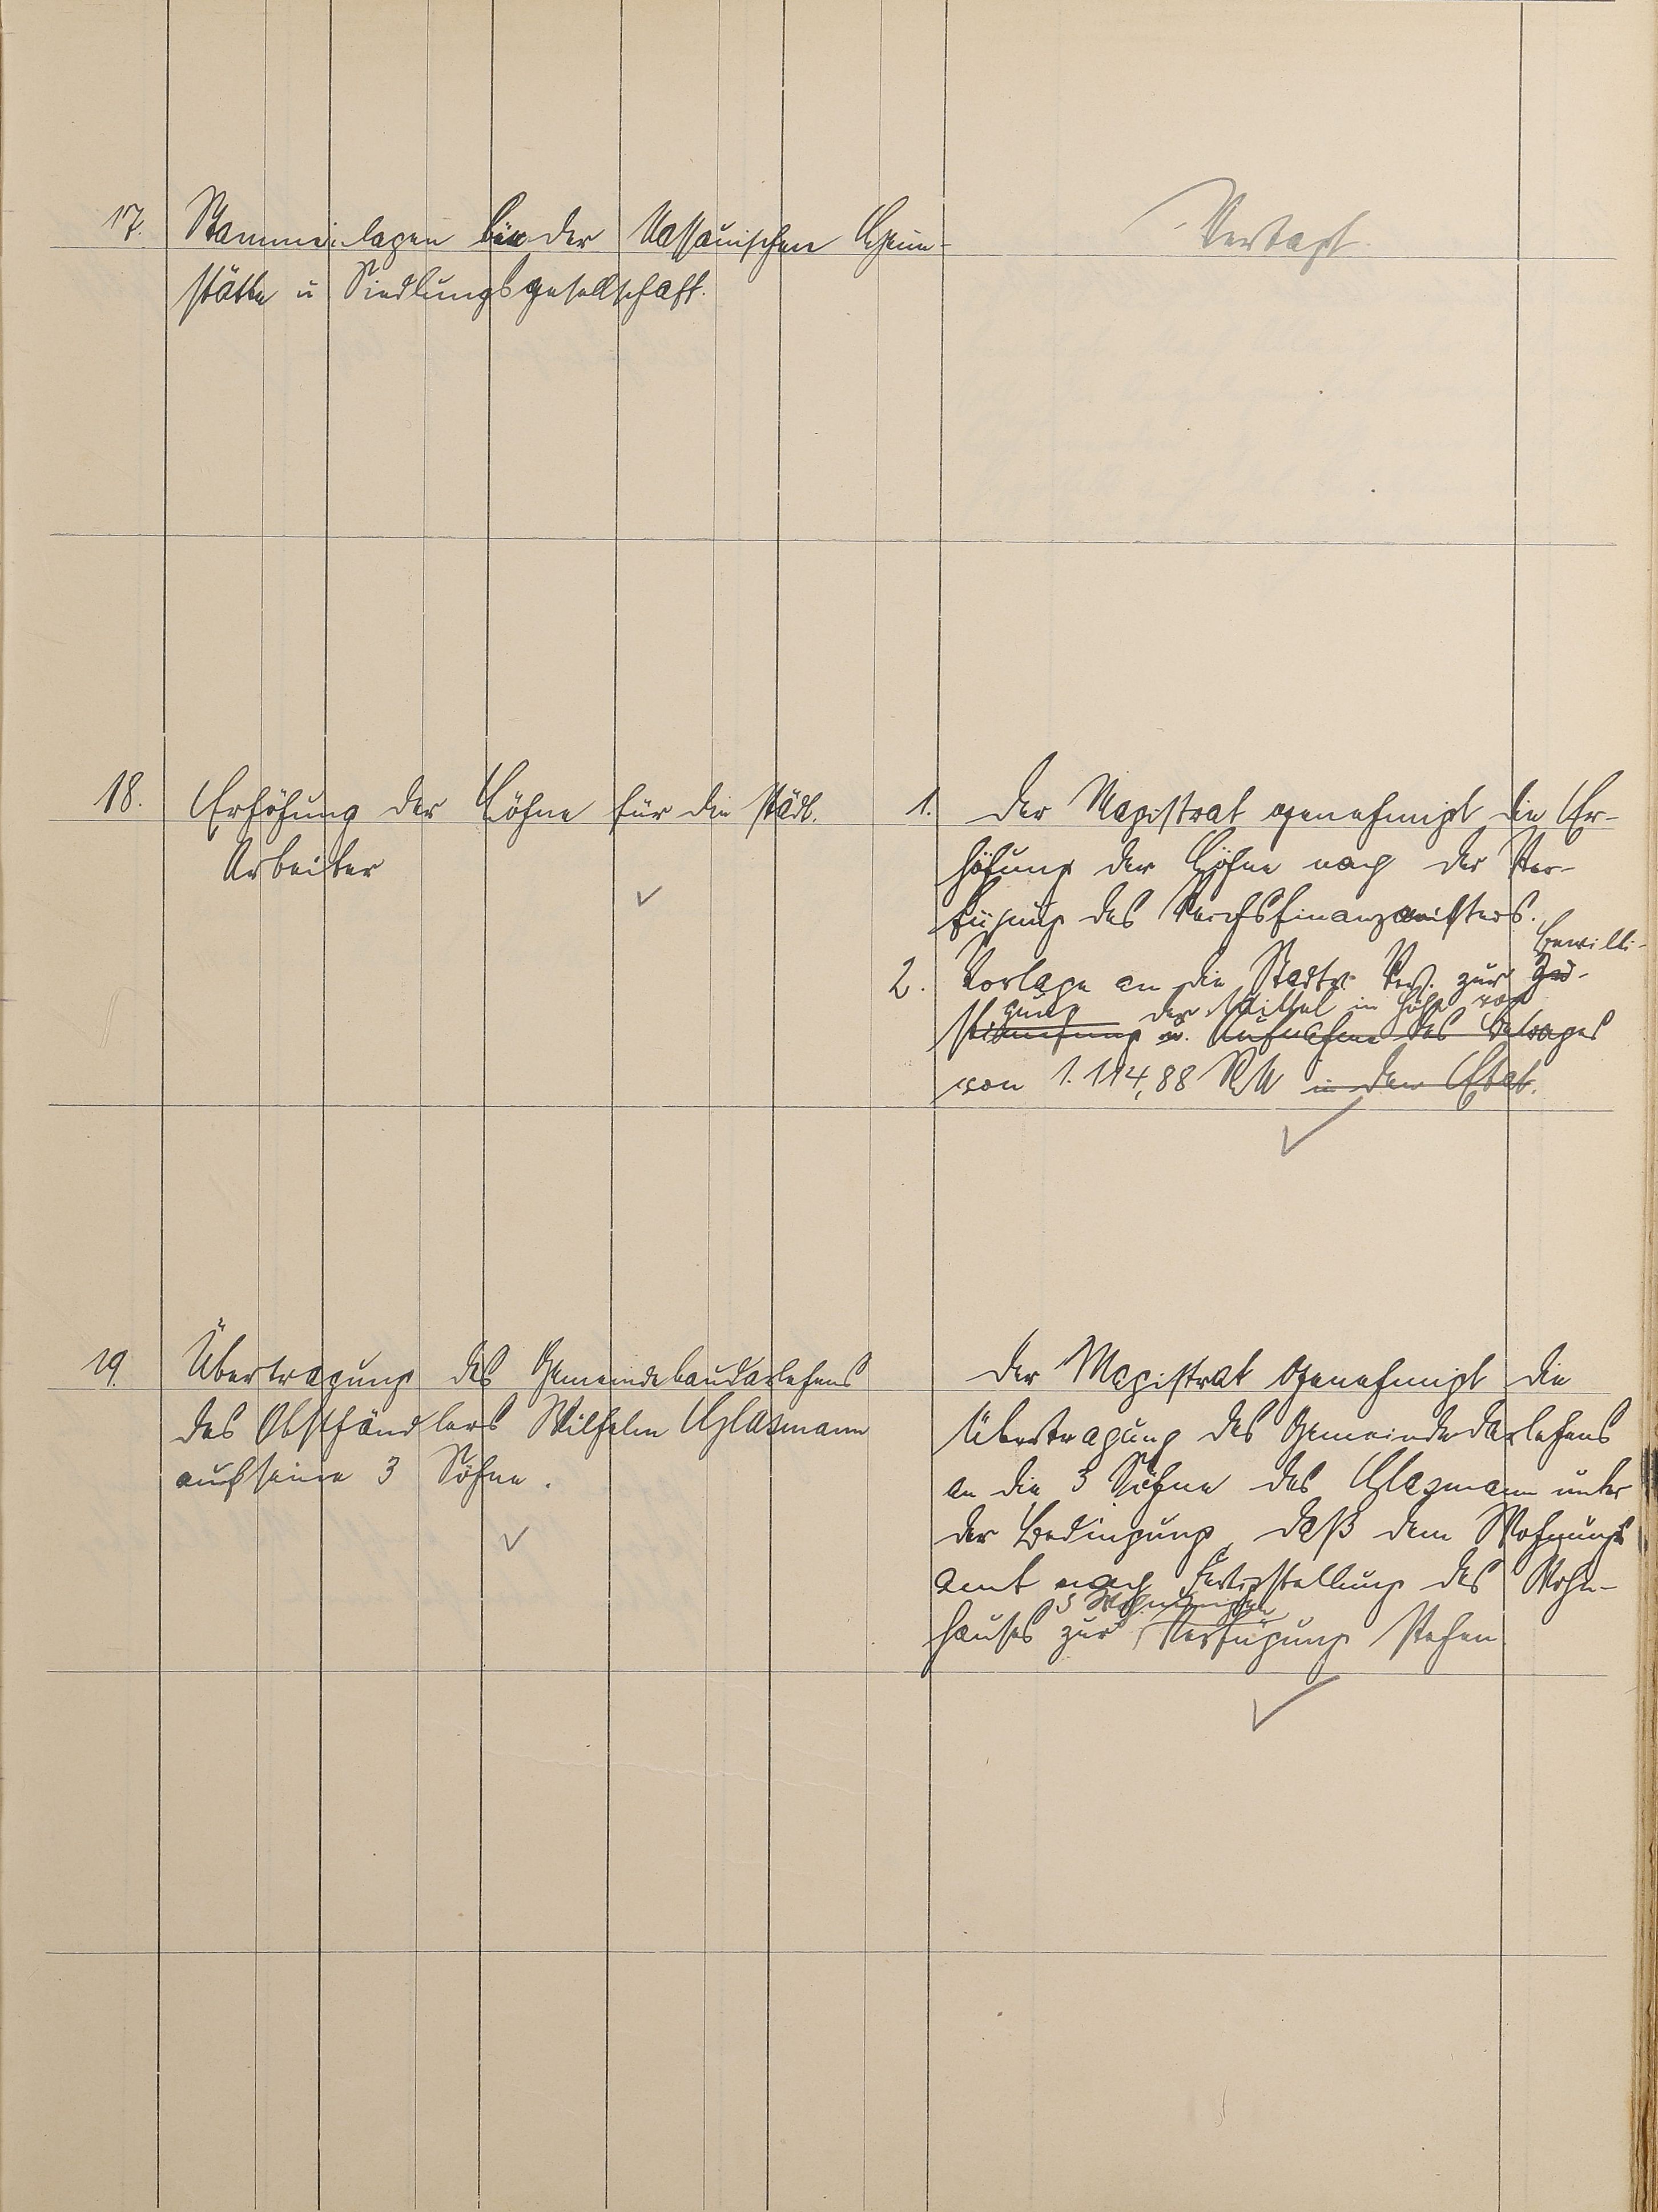 17. Stammeinlagen bei der Nassauischen Heim-
stätte u Siedlungsgesellschaft.
Vertagt.
18. Erhöhung der Löhne für die städt.
Arbeiter
1. Der Magistrat genehmigt die Er-
höhung der Löhne nach der Ver-
fügung des Reichsfinanzministers.
Bewilli-
2. Vorlage an die Stadtv. Vers. zur Zu-
gung der Mittel in Höhe von
stimmung u. Aufnahme des Betrages
von 1.114,88 RM in den Etat.
19. Übertragung des Gemeindebaudarlehens
des Obsthändlers Wilhelm Glasmann
auf seine 3 Söhne.
Der Magistrat genehmigt die
Übertragung des Gemeindedarlehens
an die 3 Söhne des Glasmann unter
der Bedingung, daß dem Wohnungs
amt nach Fertigstellung des Wohn-
3 Wohnungen
hauses zur Verfügung stehen.